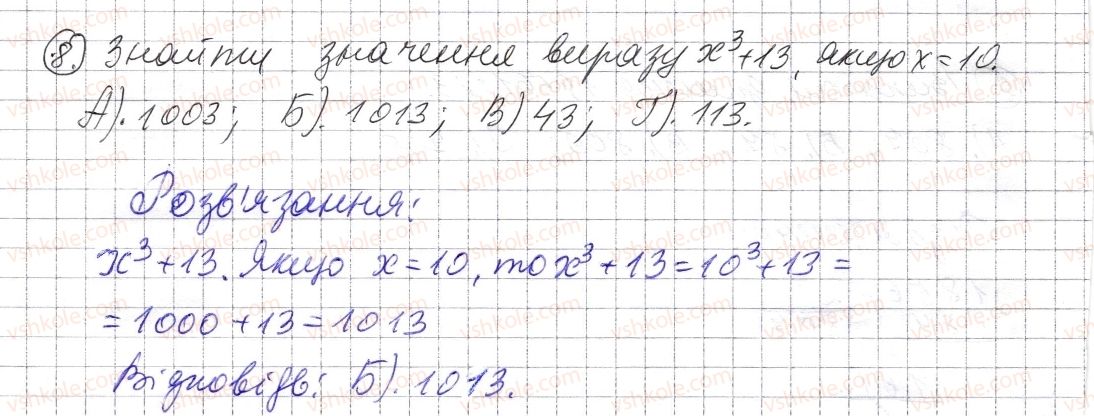 8. Знайти значення виразу x³+13, якщо x=10.
А). 1003; Б). 1013; В) 43; Г). 113.
Розв'язання:
x³+13. Якщо x=10, то x³+13=10³+13=
=1000+13=1013
Відповідь: Б). 1013.